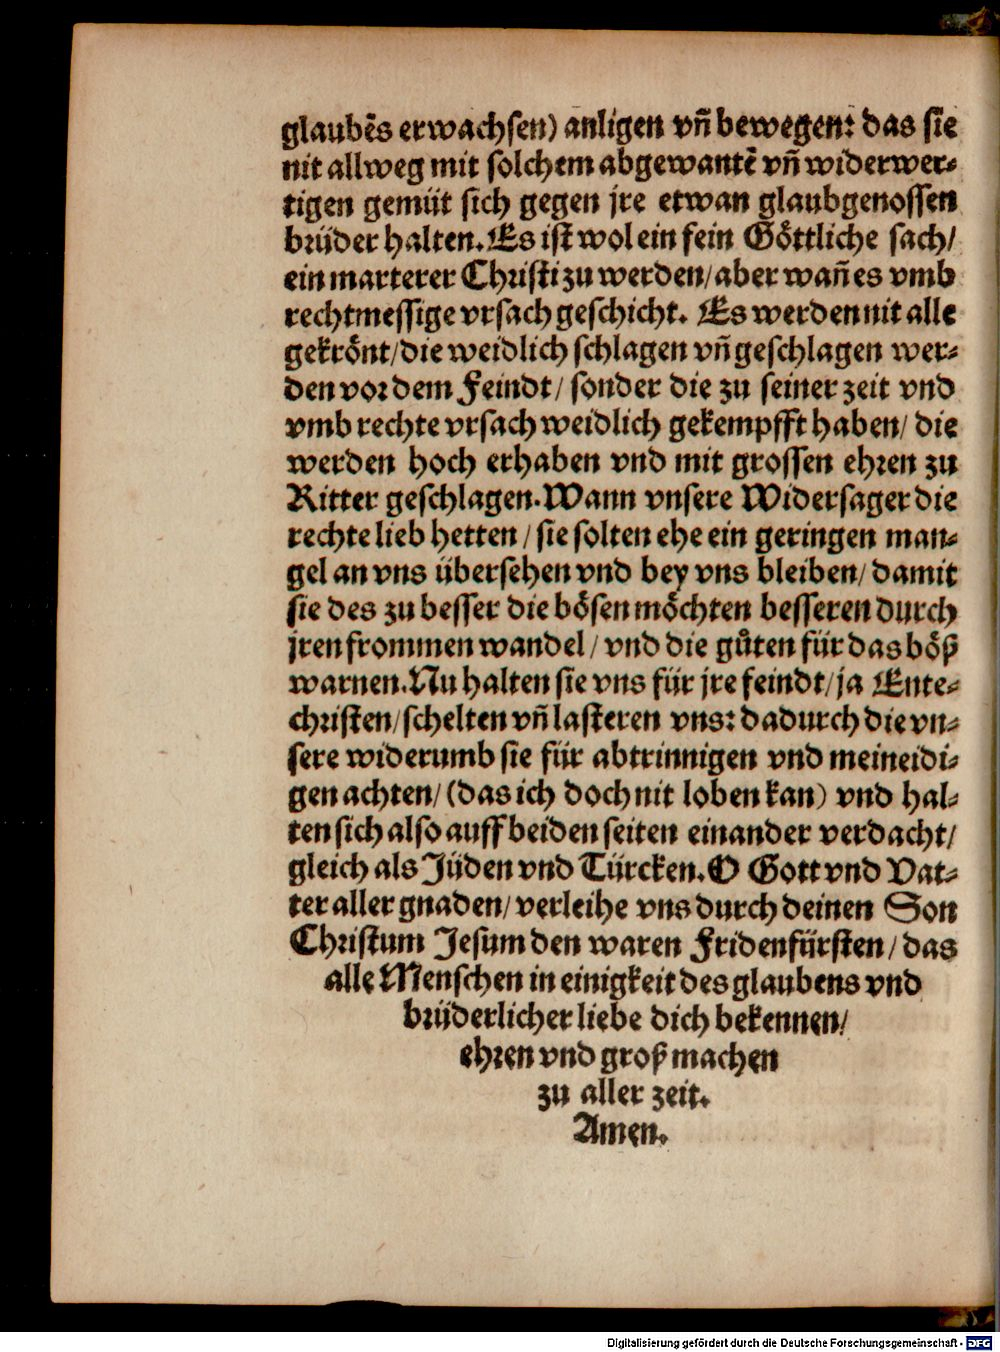 glaubēs erwachsen) anligen vñ bewegen: das sie
nit allweg mit solchem abgewantē vñ widerwer⸗
tigen gemüt sich gegen jre etwan glaubgenossen
brüder halten. Es ist wol ein fein Göttliche sach/
ein marterer Christi zu werden/ aber wañ es vmb
rechtmessige vrsach geschicht. Es werden nit alle
gekrönt/ die weidlich schlagen vñ geschlagen wer⸗
den vor dem Feindt/ sonder die zu seiner zeit vnd
vmb rechte vrsach weidlich gekempfft haben/ die
werden hoch erhaben vnd mit grossen ehren zu
Ritter geschlagen. Wann vnsere Widersager die
rechte lieb hetten/ sie solten ehe ein geringen man⸗
gel an vns übersehen vnd bey vns bleiben/ damit
sie des zu besser die bösen möchten besseren durch
jren frommen wandel/ vnd die gůten für das böß
warnen. Nu halten sie vns für jre feindt/ ja Ente⸗
christen/ schelten vñ lasteren vns: dadurch die vn⸗
sere widerumb sie für abtrinnigen vnd meineidi⸗
gen achten/ (das ich doch nit loben kan) vnd hal⸗
ten sich also auff beiden seiten einander verdacht/
gleich als Jüden vnd Türcken. O Gott vnd Vat⸗
ter aller gnaden/ verleihe vns durch deinen Son
Christum Jesum den waren Fridenfürsten/ das
alle Menschen in einigkeit des glaubens vnd
brüderlicher liebe dich bekennen/
ehren vnd groß machen
zu aller zeit.
Amen.
Digitalisierung gefördert durch die Deutsche Forschungsgemeinschaft - DFG